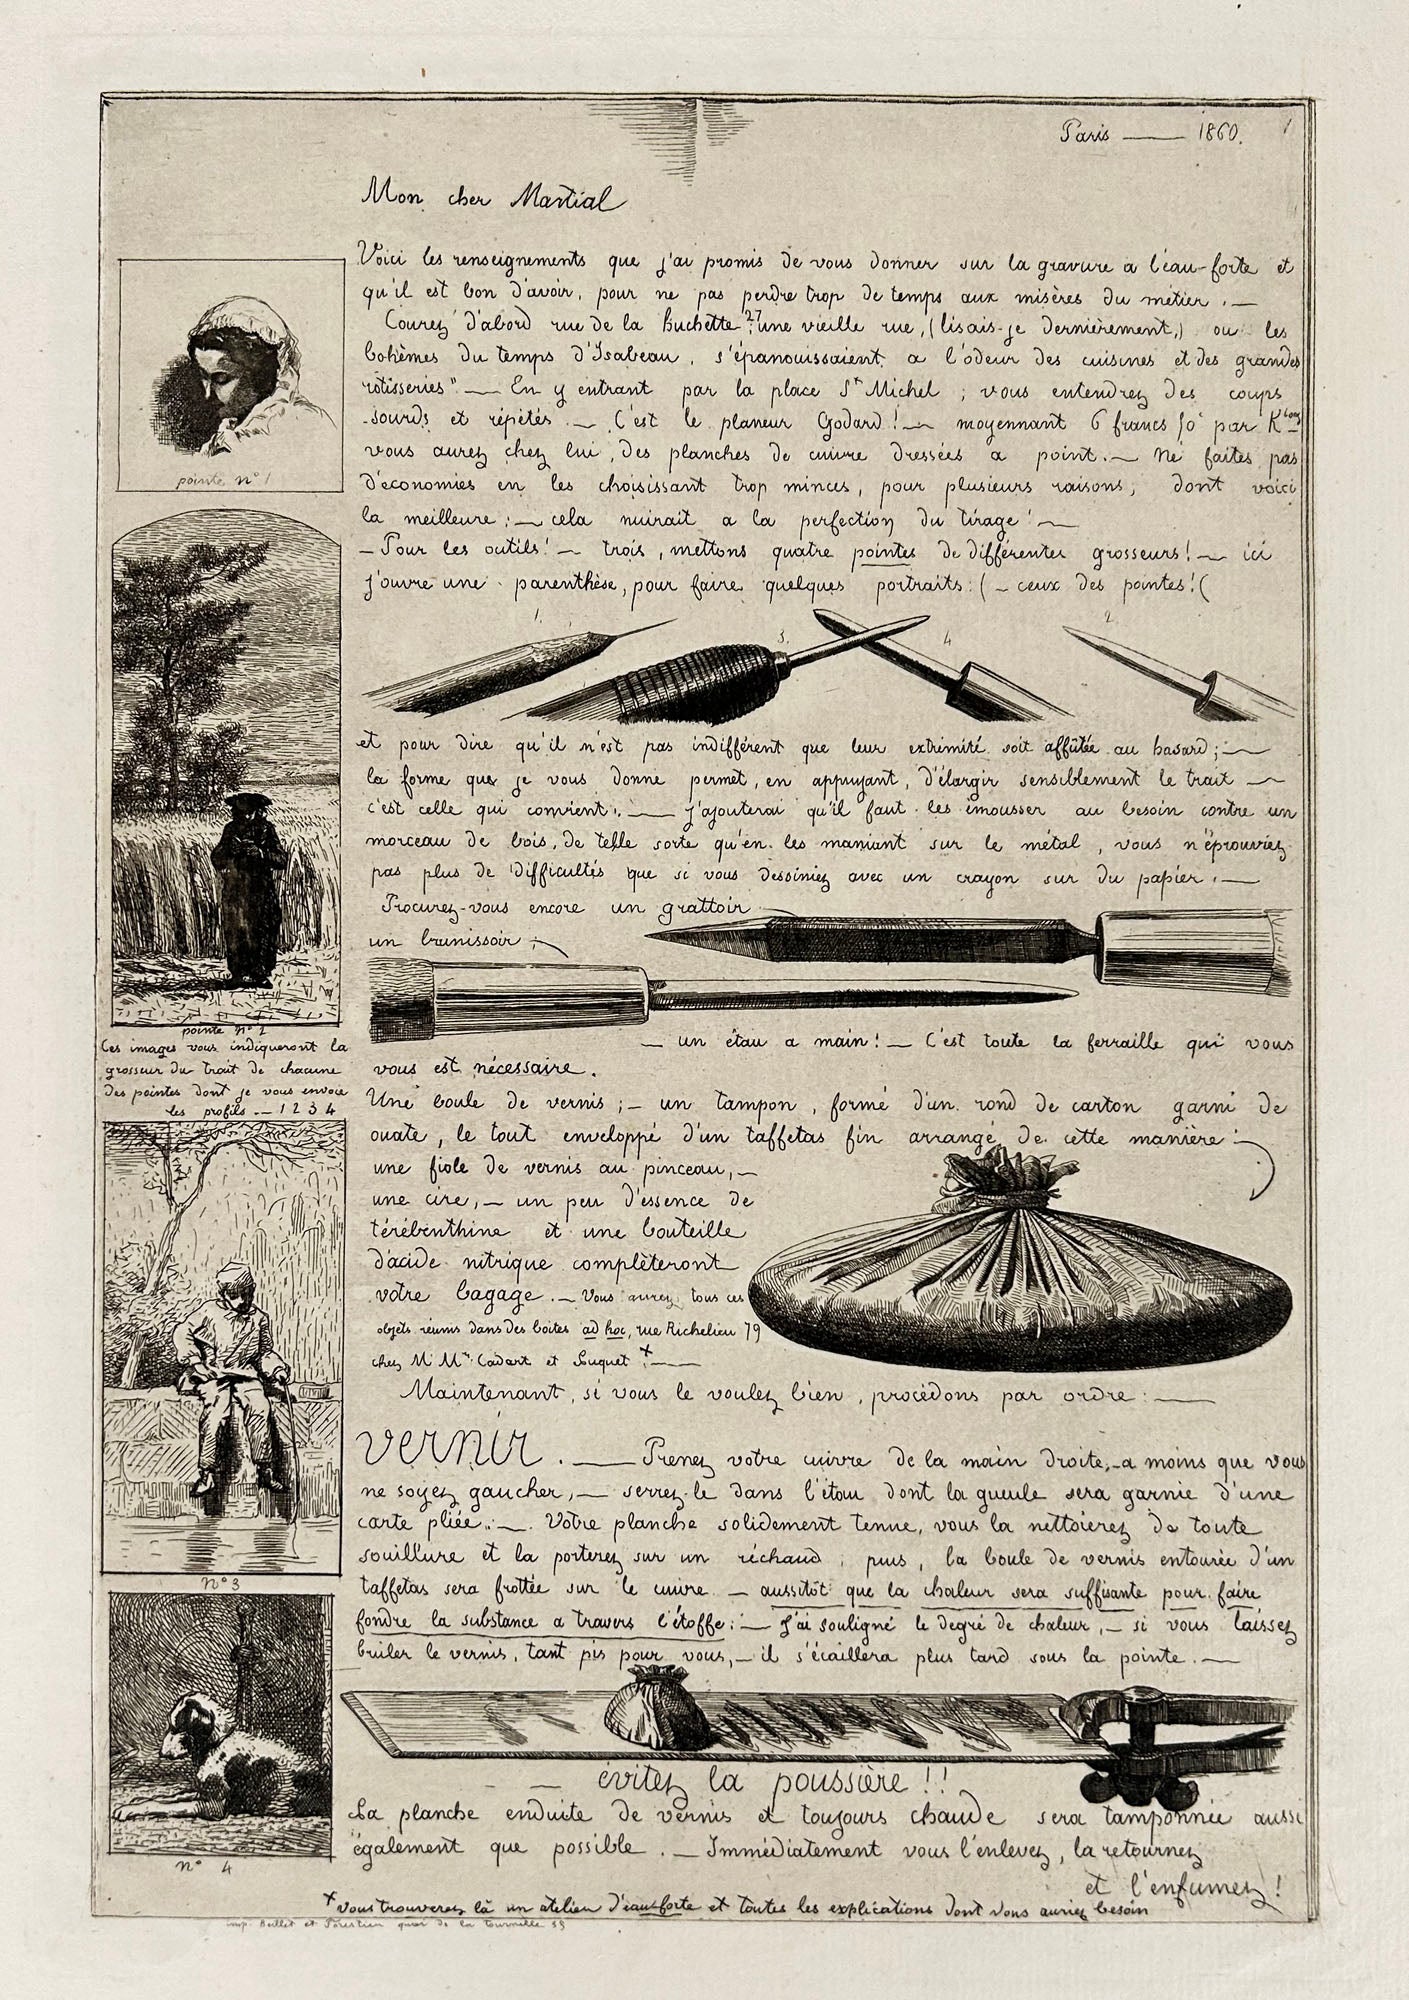 Paris — 1860. 1
Mon cher Martial
Voici les renseignements que j'ai promis de vous donner sur la gravure a l'eau-forte et
qu'il est bon d'avoir, pour ne pas perdre trop de temps aux misères du métier. —
Courez d'abord rue de la Huchette 27, "une vieille rue, (lisais-je dernièrement,) ou les
bohèmes du temps d'Isabeau, s'épanouissaient a l'odeur des cuisines et des grandes
rôtisseries" — En y entrant par la place St Michel ; vous entendrez des coups
sourds et répétés. — C'est le planeur Godard ! — moyennant 6 francs 50c par K
vous aurez chez lui, des planches de cuivre dressées a point. — Ne faites pas
d'économies en les choisissant trop minces, pour plusieurs raisons, dont voici
la meilleure : — cela nuirait a la perfection du tirage ! —
— Pour les outils ! — trois, mettons quatre pointes de différentes grosseurs ! — ici
j'ouvre une parenthèse, pour faire quelques portraits : ( — ceux des pointes ! (
1. 3. 4 2
et pour dire qu'il n'est pas indifférent que leur extrimité soit affûtée au hasard ; —
la forme que je vous donne permet, en appuyant, d'élargir sensiblement le trait —
c'est celle qui convient. — J'ajouterai qu'il faut les émousser au besoin contre un
morceau de bois, de telle sorte qu'en les maniant sur le métal, vous n'éprouviez
pas plus de difficultés que si vous dessiniez avec un crayon sur du papier. —
Procurez-vous encore un grattoir
un brunissoir ;
— un étau a main ! — C'est toute la ferraille qui vous
vous est nécessaire.
Une boule de vernis ; — un tampon, formé d'un rond de carton garni de
ouate, le tout enveloppé d'un taffetas fin arrangé de cette manière :
une fiole de vernis au pinceau, —
une cire, — un peu d'essence de
térébenthine et une bouteille
d'acide nitrique complèteront
votre bagage. — Vous aurez tous ces
objets réunis dans des boites ad hoc, rue Richelieu 79
chez M. Mrs Cadart et Luquet + . —
Maintenant, si vous le voulez bien, procédons par ordre : —
vernir. — Prenez votre cuivre de la main droite, — a moins que vous
ne soyez gaucher, — serrez-le dans l'étau dont la gueule sera garnie d'une
carte pliée. — Votre planche solidement tenue, vous la nettoierez de toute
souillure et la porterez sur un réchaud ; puis, la boule de vernis entourée d'un
taffetas sera frottée sur le cuivre — aussitôt que la chaleur sera suffisante pour faire
fondre la substance a travers l'étoffe : — J'ai souligné le degré de chaleur, — si vous laissez
bruler le vernis, tant pis pour vous, — il s'écaillera plus tard sous la pointe. —
— — évitez la poussière !!
La planche enduite de vernis et toujours chaude sera tamponnée aussi
également que possible. — Immédiatement vous l'enlevez, la retournez
et l'enfumez !
+ vous trouverez là un atelier d'eau-forte et toutes les explications dont vous auriez besoin
pointe n° 1
pointe n° 2
Ces images vous indiqueront la
grosseur du trait de chacune
des pointes dont je vous envoie
les profils. — 1 2 3 4
n° 3
n° 4
imp. Beillet et quai de la Tournelle 35